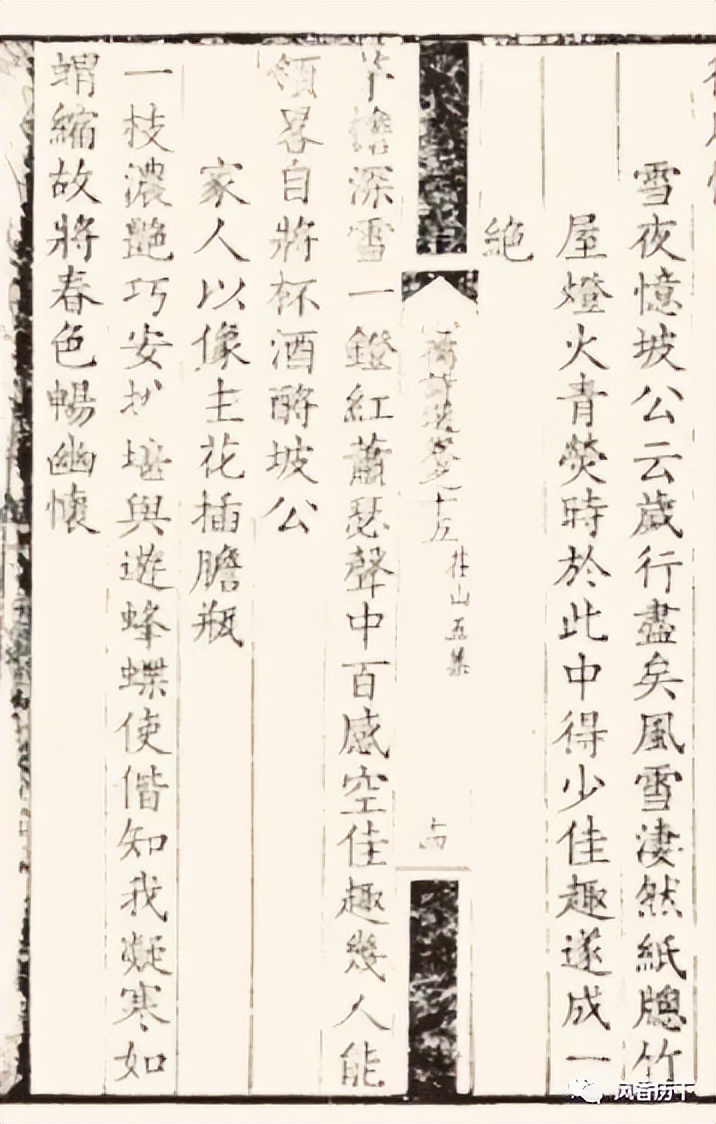 雪夜憶坡公云歲行盡矣風雪淒然紙牕竹
屋燈火青熒時於此中得少佳趣遂成一
絕
十五
深雪一鐙紅蕭瑟聲中百感空佳趣幾人能
領畧自將杯酒酹坡公
家人以像生花插膽瓶
一枝濃艷巧安排堪與遊蜂蝶使偕知我凝寒如
蝟縮故將春色暢幽懷